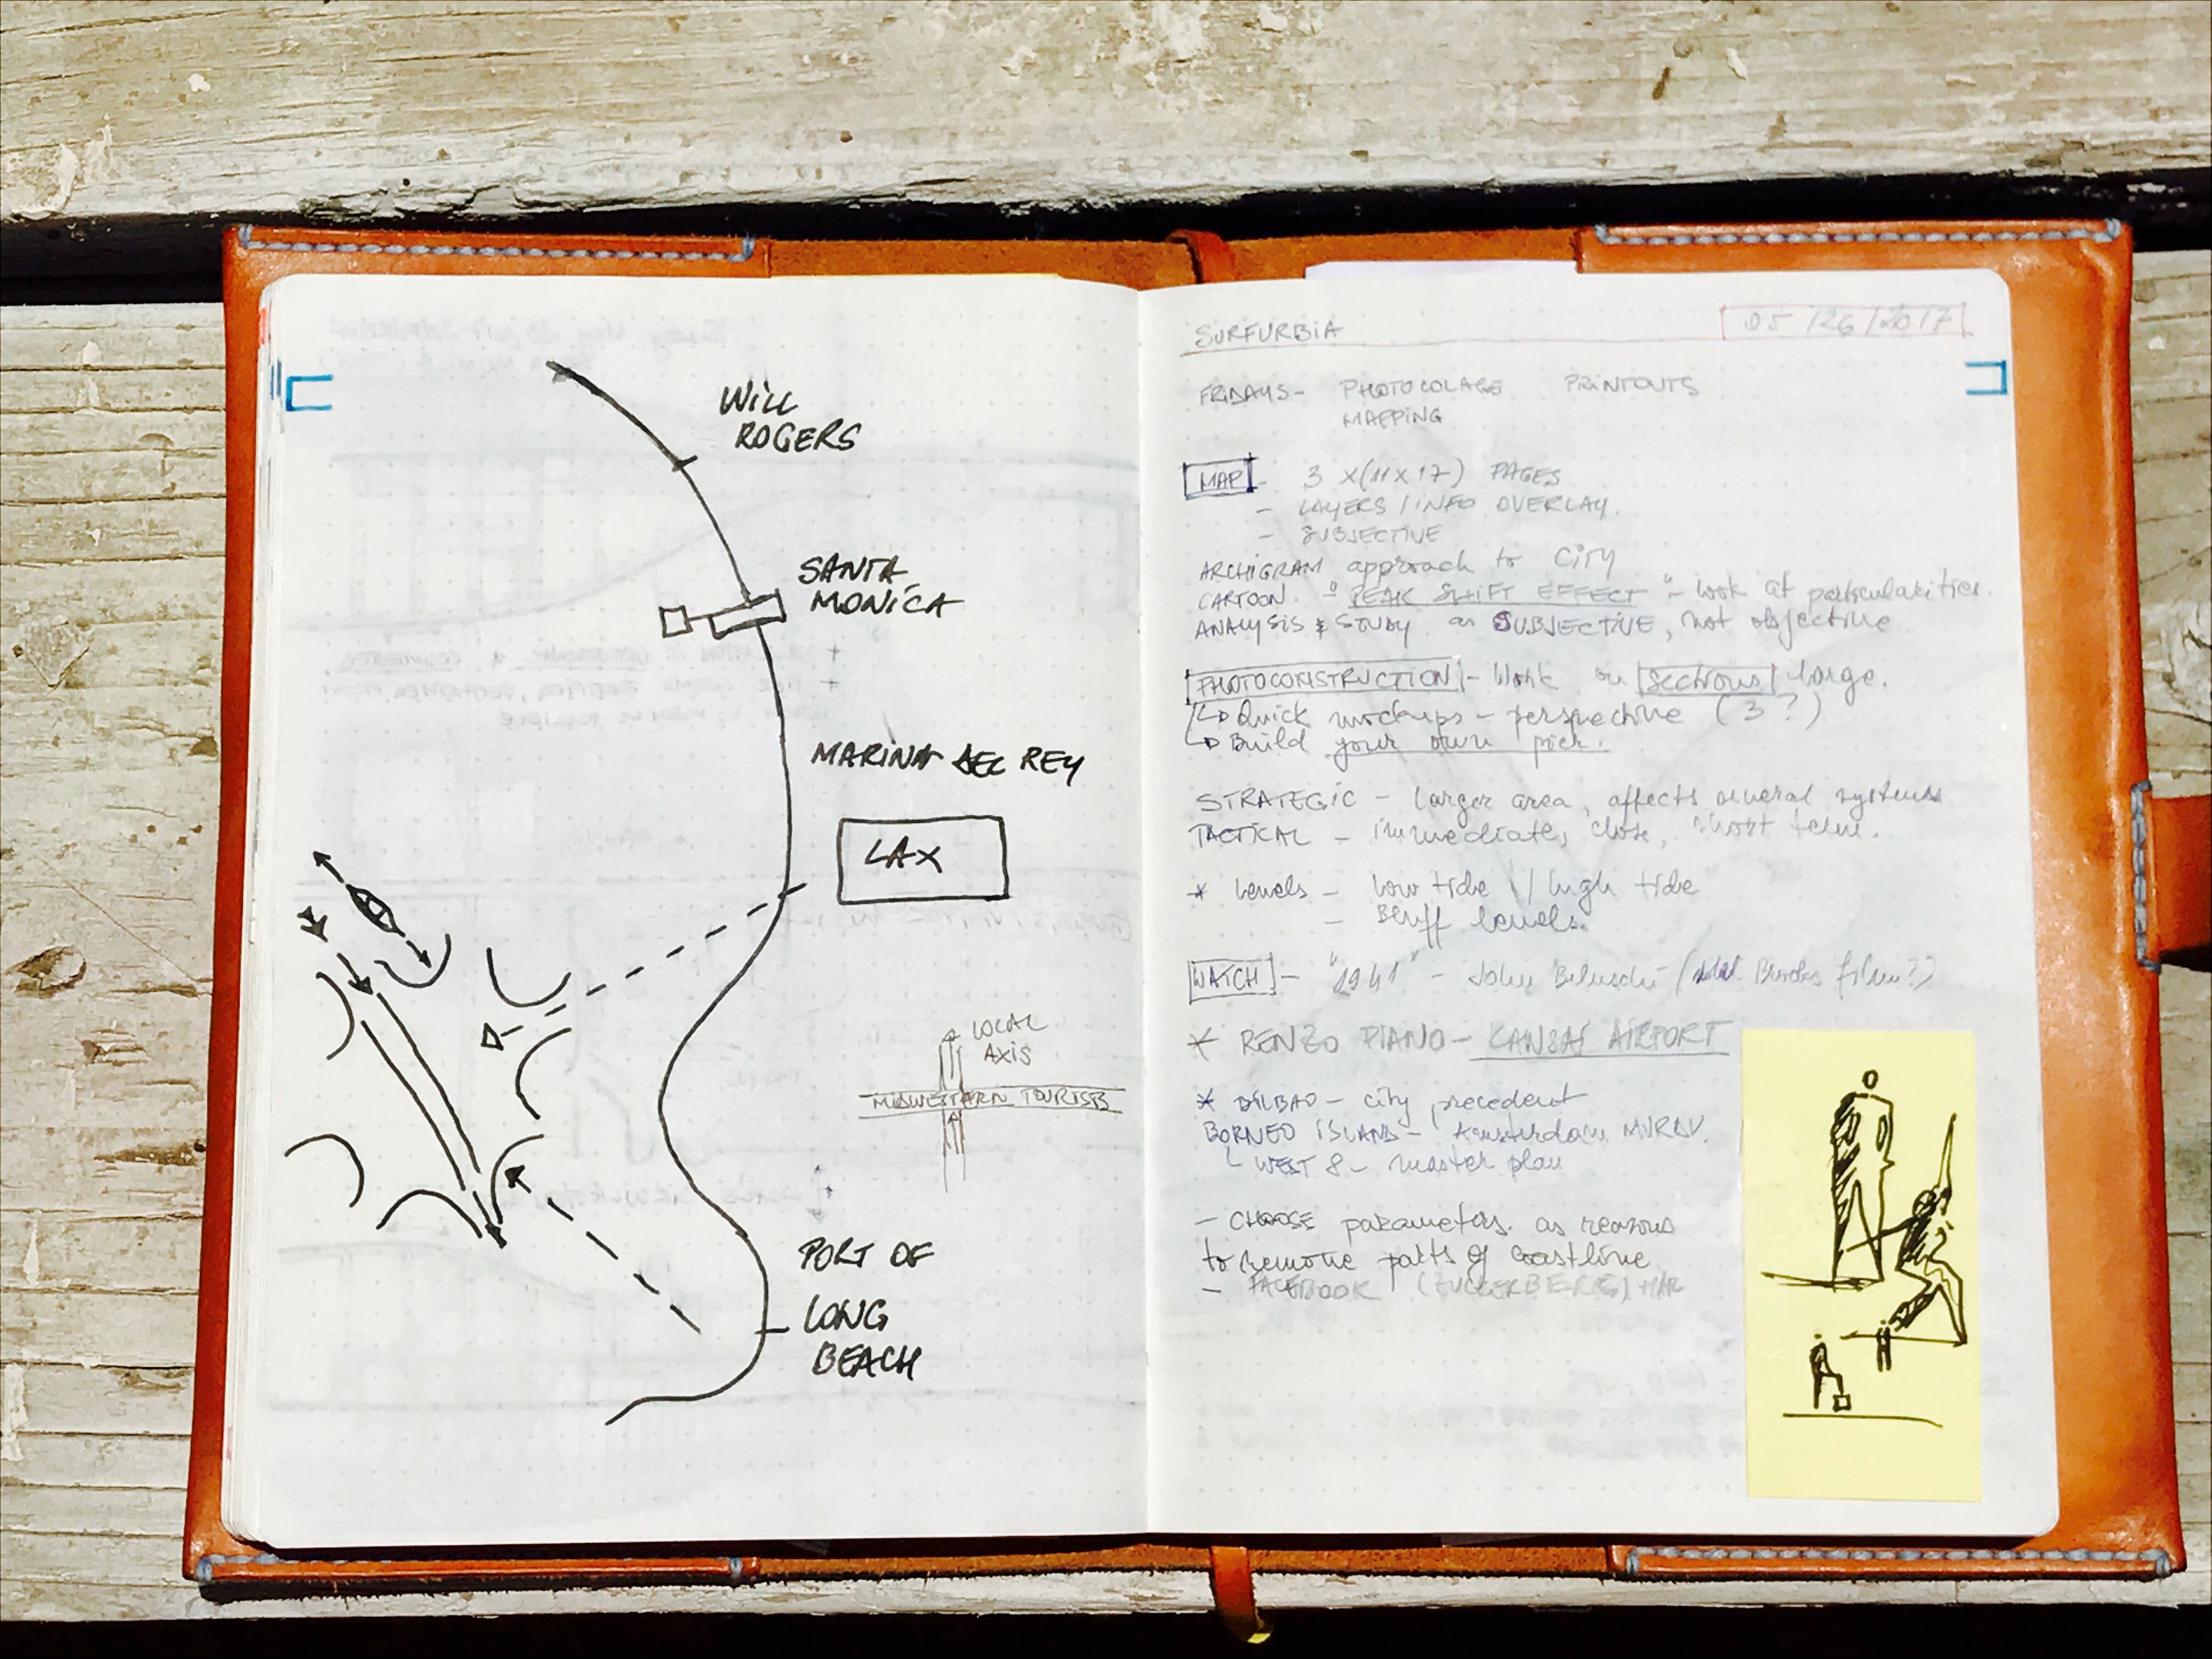 WILL
ROGERS
SANTA
MONICA
MARINA DEL REY
LAX
LOCAL
AXIS
MIDWESTERN TOURISTS
PORT OF
LONG
BEACH
SURFURBIA
05/26/2017
FRIDAYS - PHOTOCOLAGE PRINTOUTS
MAPPING
MAP - 3 x(11x17) PAGES
- LAYERS / INFO OVERLAY.
- SUBJECTIVE
ARCHIGRAM approach to City
CARTOON. - "PEAK SHIFT EFFECT" - look at particularities.
ANALYSIS & STUDY as SUBJECTIVE, not objective
PHOTOCONSTRUCTION - Work on sections large.
↳ Quick mockups - perspective (3?)
↳ Build your own pier.
STRATEGIC - larger area, affects several systems
TACTICAL - immediate, close, short term.
* levels - low tide // high tide
- Bluff levels.
WATCH - "1941" - John Belushi ( Brooks film?)
* RENZO PIANO - KANSAI AIRPORT
* BILBAO - city precedent
BORNEO ISLAND - Amsterdam MVRDV.
↳ WEST 8 - master plan
- CHOOSE parameters. as reasons
to remove parts of coastline
- FACEBOOK (ZUCKERBERG)